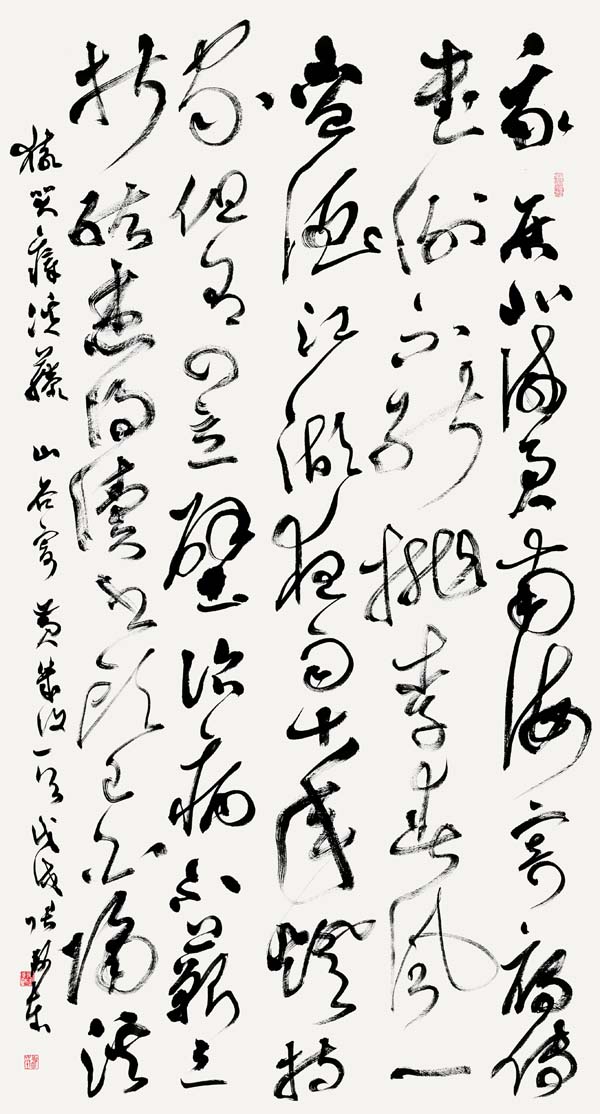 我居北海君南海寄雁傳
書謝不能桃李春風一
盃酒江湖夜雨十年燈持
家但有四立壁治病不蘄三
折肱想得讀書頭已白隔溪
猿哭瘴溪藤 山谷寄黃幾復一首 戊戌